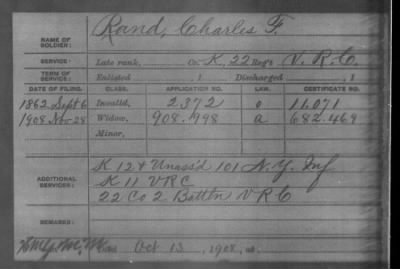 NAME OF SOLDIER: Rand, Charles F.
SERVICE: Late rank, Co. K, 22 Reg't V. R. C.
TERM OF SERVICE: Enlisted , 1 Discharged , 1
DATE OF FILING. CLASS. APPLICATION NO. LAW. CERTIFICATE NO.
1862 Sept 6 Invalid, 2.372 o 11.071
1908 Nov 28 Widow, 908.998 a 682.469
Minor,
ADDITIONAL SERVICES: K 12 & Unass'd 101 N.Y. Inf
K 11 VRC
22 Co 2 Battln V R C
REMARKS:
Died Oct 13, 1908, at